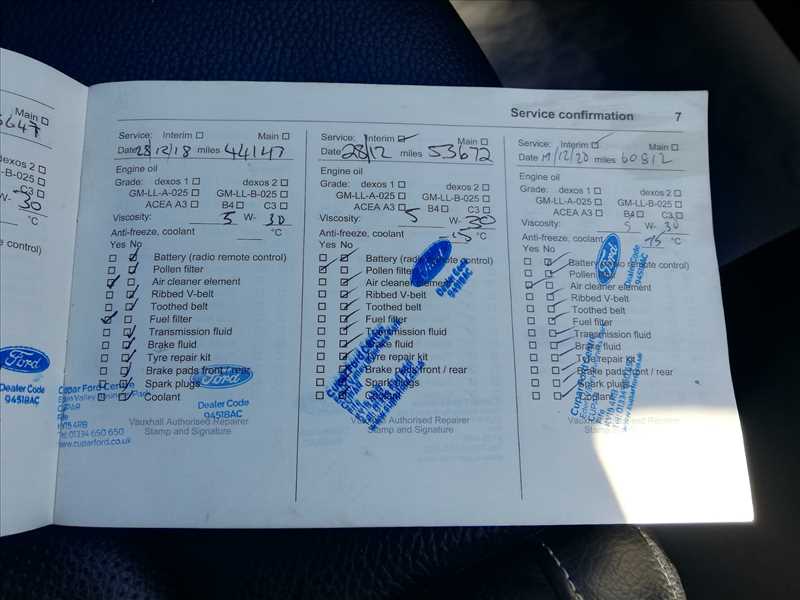 Service confirmation 7
Main
5647
dexos 2
-LL-B-025
C3
W- 30
°C
te control)
Ford
Dealer Code
94518AC
Service: Interim Main
Date 28/12/18 miles 44147
Engine oil
Grade: dexos 1 dexos 2
GM-LL-A-025 GM-LL-B-025
ACEA A3 B4 C3
Viscosity: 5 W- 30
Anti-freeze, coolant °C
Yes No
Battery (radio remote control)
Pollen filter
Air cleaner element
Ribbed V-belt
Toothed belt
Fuel filter
Transmission fluid
Brake fluid
Tyre repair kit
Brake pads front / rear
Spark plugs
Coolant
Ford
Dealer Code
94518AC
Cupar Ford Centre
Eden Valley Business Park
CUPAR
Fife
KY15 4RB
Tel: 01334 650 650
www.cuparford.co.uk
Vauxhall Authorised Repairer
Stamp and Signature
Service: Interim Main
Date 28/12 miles 53672
Engine oil
Grade: dexos 1 dexos 2
GM-LL-A-025 GM-LL-B-025
ACEA A3 B4 C3
Viscosity: 5 W- 30
Anti-freeze, coolant -15 °C
Yes No
Battery (radio remote control)
Pollen filter
Air cleaner element
Ribbed V-belt
Toothed belt
Fuel filter
Transmission fluid
Brake fluid
Tyre repair kit
Brake pads front / rear
Spark plugs
Coolant
Ford
Dealer Code
94518AC
Cupar Ford Centre
Vauxhall Authorised Repairer
Stamp and Signature
Service: Interim Main
Date 17/12/20 miles 60812
Engine oil
Grade: dexos 1 dexos 2
GM-LL-A-025 GM-LL-B-025
ACEA A3 B4 C3
Viscosity: 5 W- 30
Anti-freeze, coolant -15 °C
Yes No
Battery (radio remote control)
Pollen filter
Air cleaner element
Ribbed V-belt
Toothed belt
Fuel filter
Transmission fluid
Brake fluid
Tyre repair kit
Brake pads front / rear
Spark plugs
Coolant
Ford
Dealer Code
94518AC
Cupar Ford Centre
CUPAR
KY15 4RB
Tel: 01334
www.cuparford
Vauxhall Authorised Repairer
Stamp and Signature